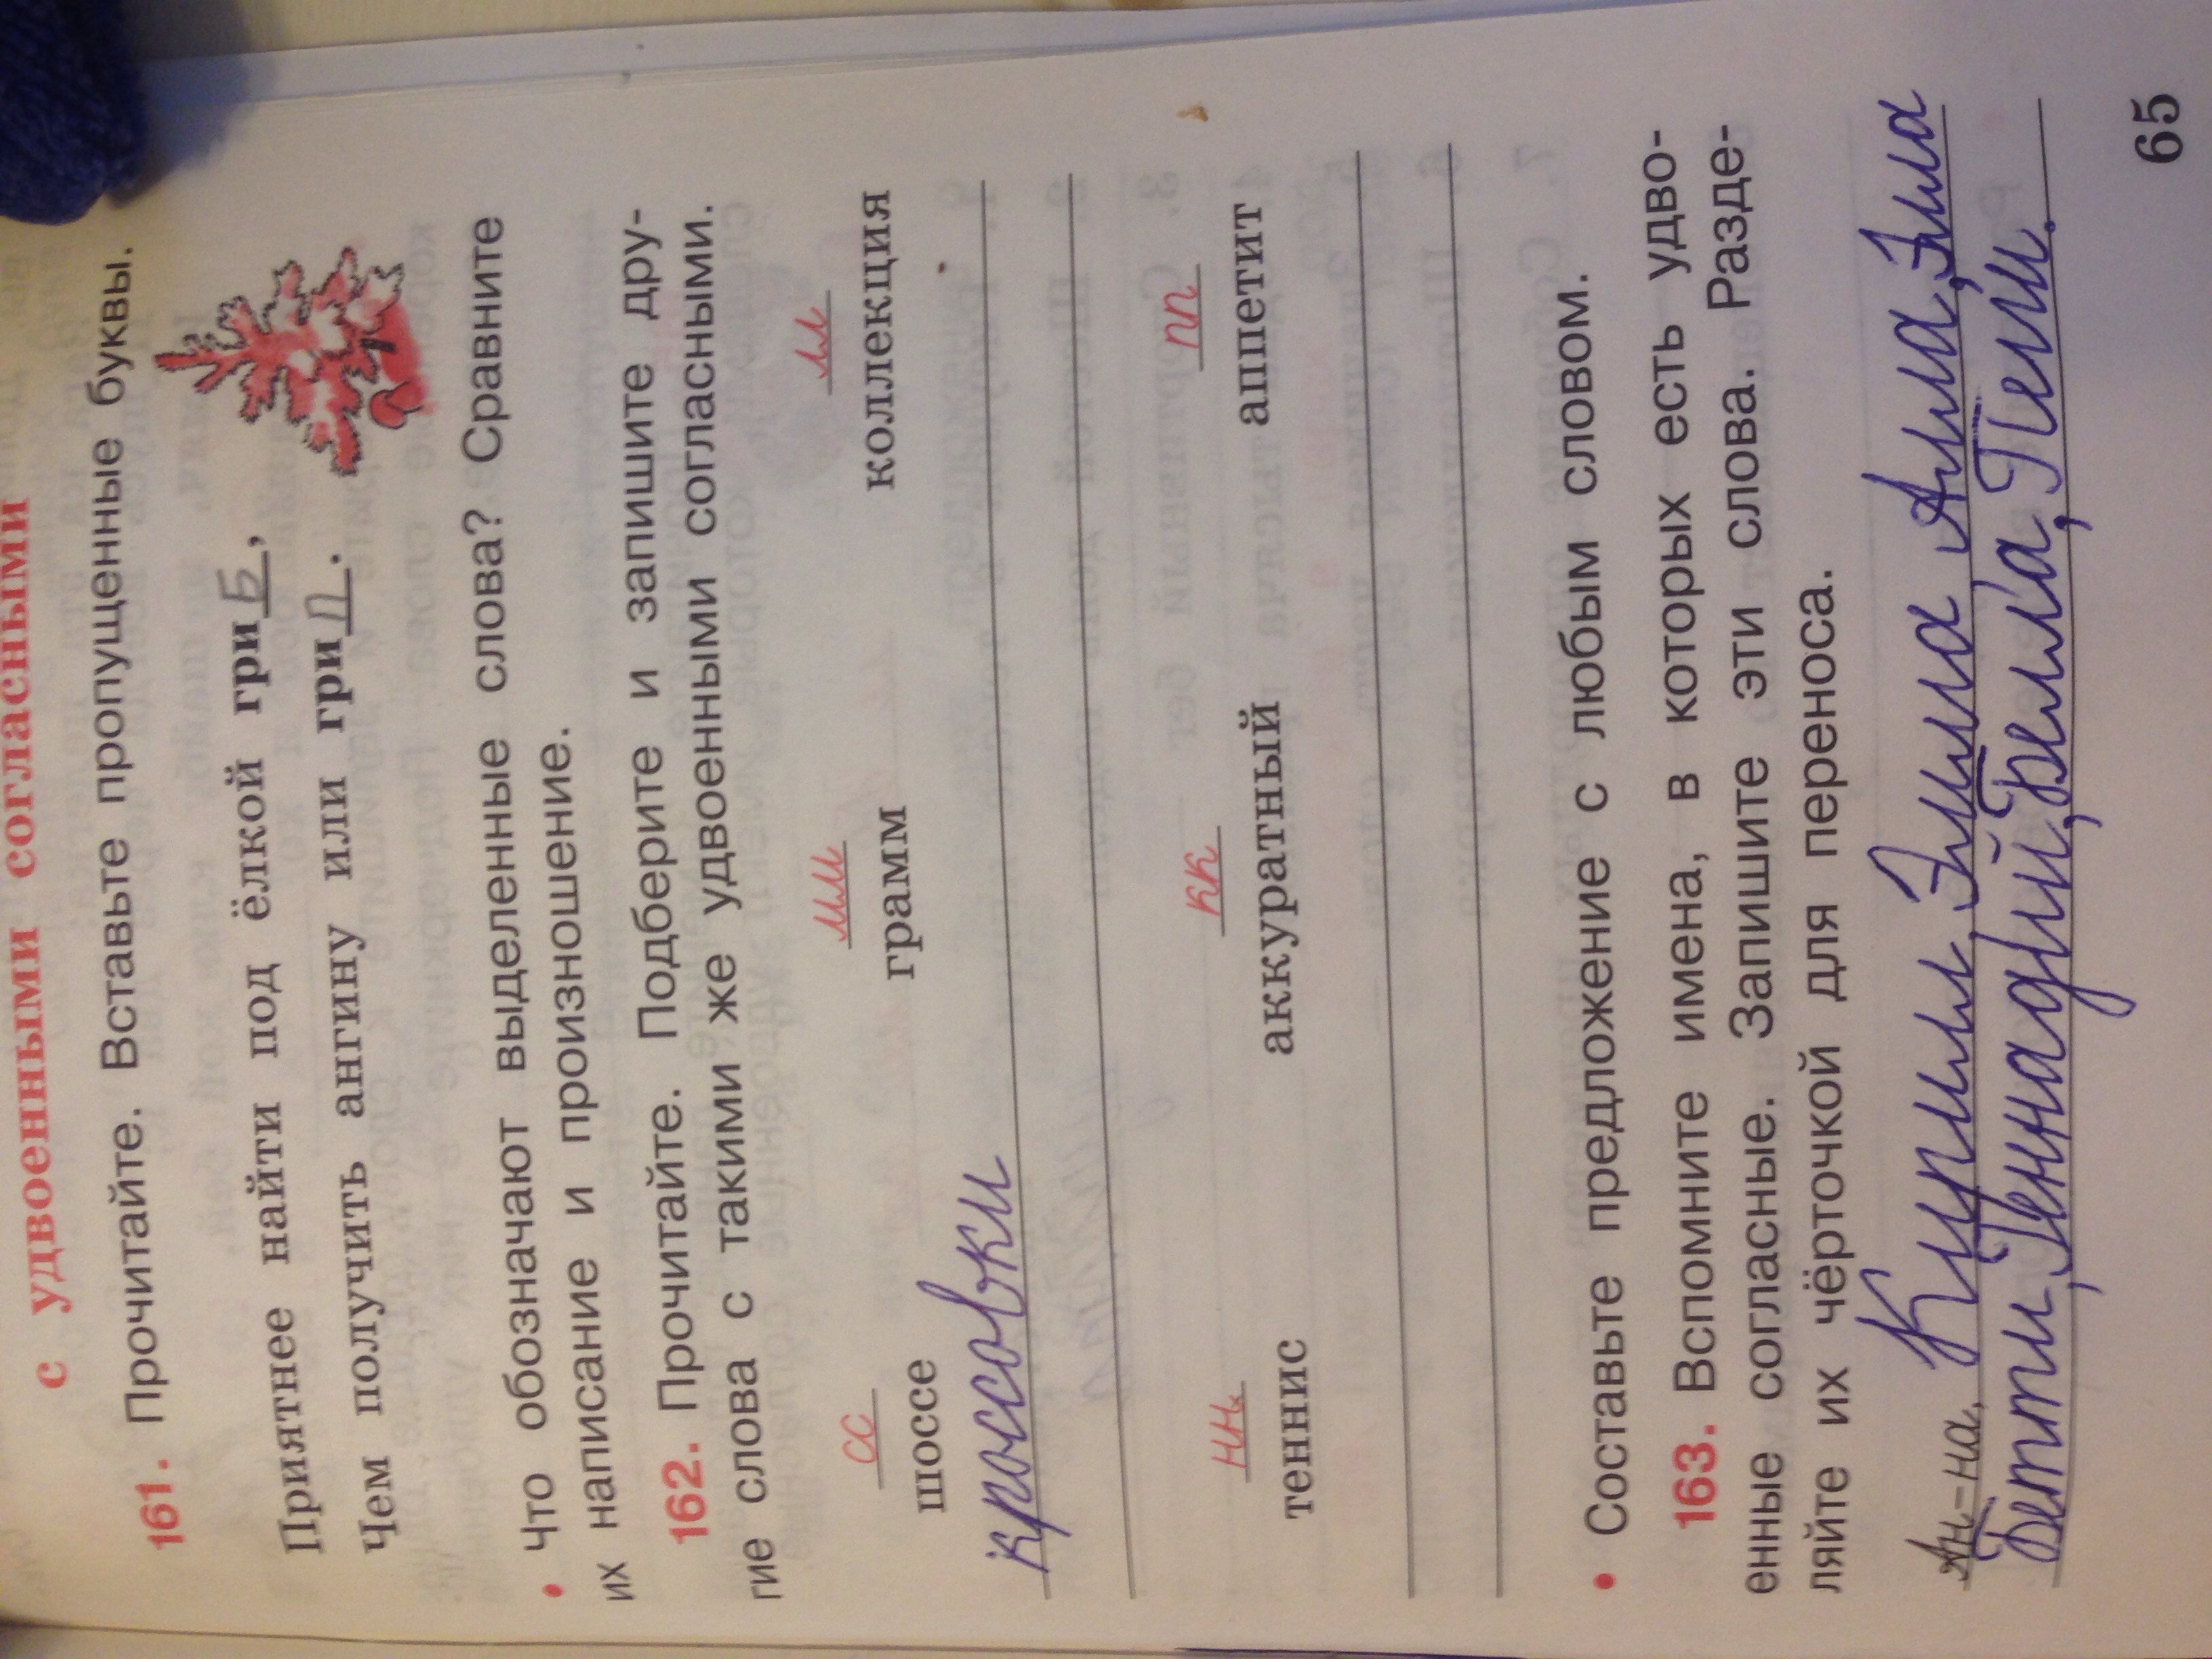 с удвоенными согласными
161. Прочитайте. Вставьте пропущенные буквы.
Приятнее найти под ёлкой гриб,
Чем получить ангину или грипп.
• Что обозначают выделенные слова? Сравните
их написание и произношение.
162. Прочитайте. Подберите и запишите дру-
гие слова с такими же удвоенными согласными.
сс мм лл
шоссе грамм коллекция
кроссовки
нн кк пп
теннис аккуратный аппетит
• Составьте предложение с любым словом.
163. Вспомните имена, в которых есть удво-
енные согласные. Запишите эти слова. Разде-
ляйте их чёрточкой для переноса.
Ан-на, Кирилл, Эмма Алла, Элла
Бетти, Геннадий, Белла, Пелли.
65